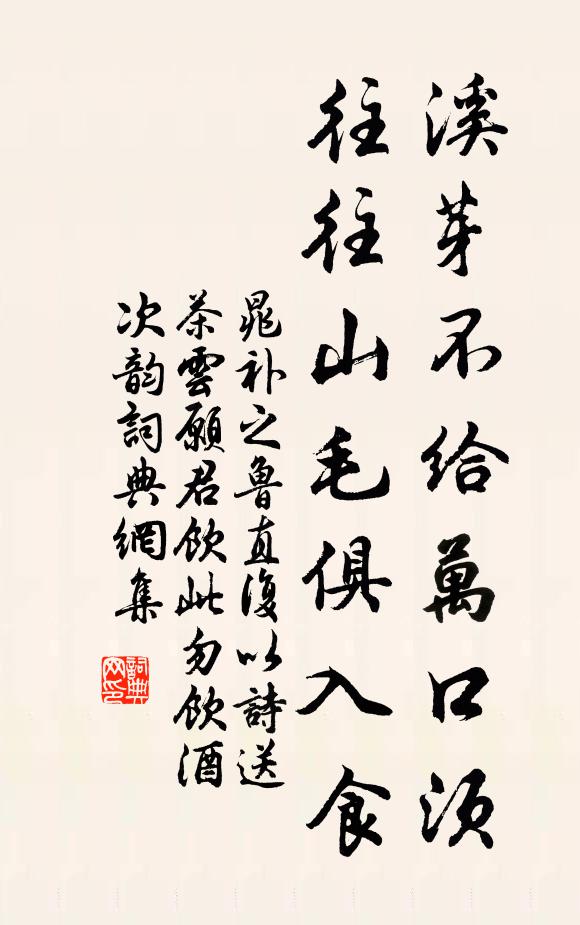 溪芽不给萬口須
往往山毛俱入食
晁补之魯直復以詩送
茶雲願君飲此勿飲酒
次韵詞典網集
詞典网印